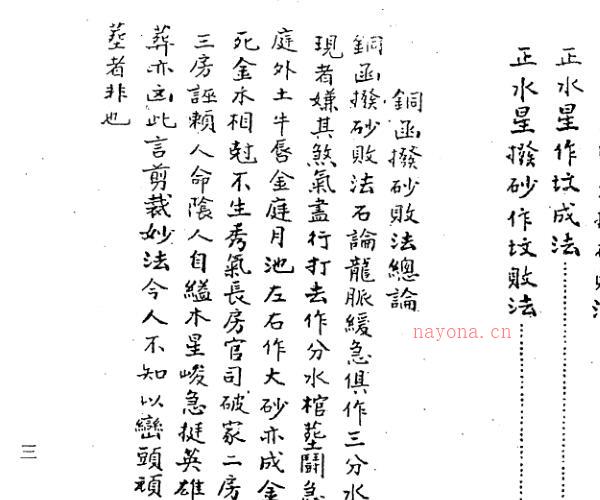 正水星作坟成法
正水星撥砂作坟敗法
銅函撥砂敗法總論
銅函撥砂敗法石論龍脈緩急俱作三分水
現者嫌其煞氣盡行打去作分水棺塟鬪急
庭外土牛唇金庭月池左右作大砂亦成金
死金水相尅不生秀氣長房官司破家二房
三房誣賴人命陰人自縊木星峻急挺英雄
葬亦凶此言剪裁妙法今人不知以巒頭頑
塟者非也
三
nayona.cn